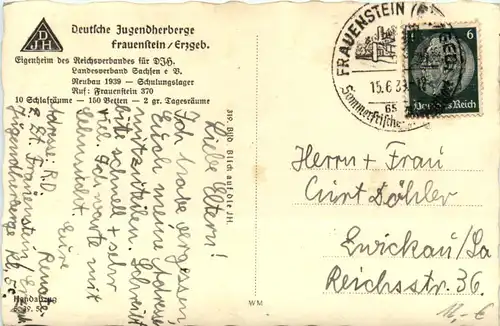 DJH
Deutsche Jugendherberge
Frauenstein/Erzgeb.
Eigenheim des Reichsverbandes für DJH.
Landesverband Sachsen e V.
Neubau 1939 — Schulungslager
Ruf: Frauenstein 370
10 Schlafräume — 150 Betten — 2 gr. Tagesräume
Blick auf die JH.
Liebe Eltern!
Ich habe vergessen,
Euch meine Adresse
mitzuteilen. Schreibt
bitte schnell + sehr
viel. Ich warte mit
Sehnsucht.
Eure
Renate
Adresse: R.D.
z. Zt. Frauenstein/Erzgeb.
Jugendherberge
Handabzug
WM
FRAUENSTEIN
15.6.39
Sommerfrische
6
Deutsches Reich
Herrn + Frau
Curt Döhler
Zwickau/Sa
Reichsstr. 36.